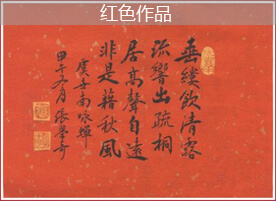 红色作品
垂緌飲清露
流響出疏桐
居高聲自遠
非是藉秋風
虞世南咏蟬
甲午又月張學奇